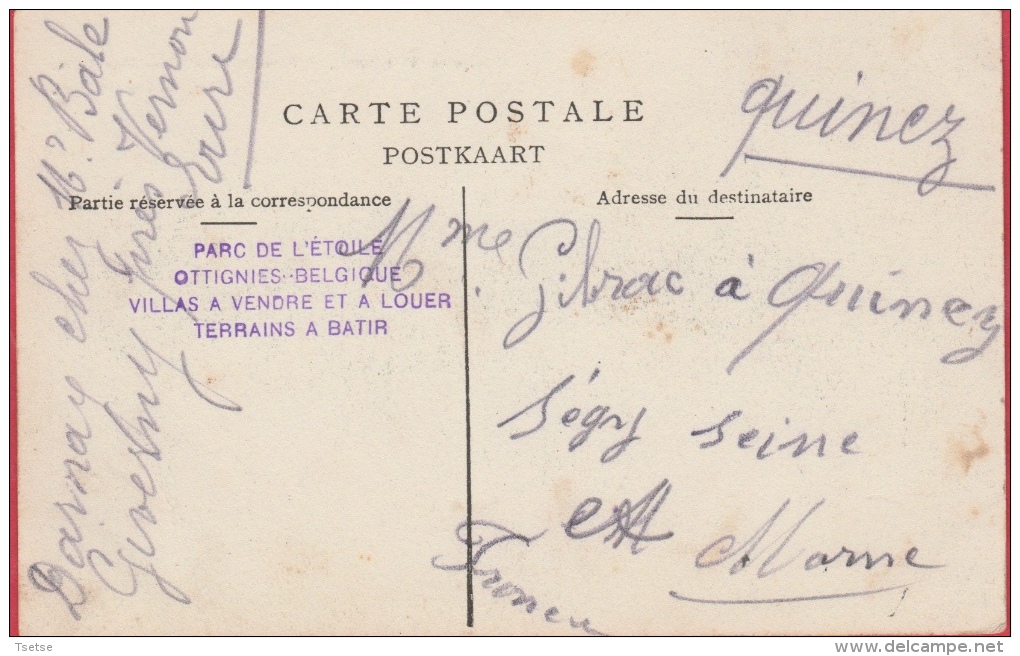 CARTE POSTALE
POSTKAART
Quincz
Partie réservée à la correspondance
Adresse du destinataire
PARC DE L'ÉTOILE
OTTIGNIES-BELGIQUE
VILLAS A VENDRE ET A LOUER
TERRAINS A BATIR
Mme Gibrac à Quincy
Ségy Seine
et Marne
Darnay chez Mr. Bâle
Giverny près Vernon
Eure
Tsetse
www.delcampe.net